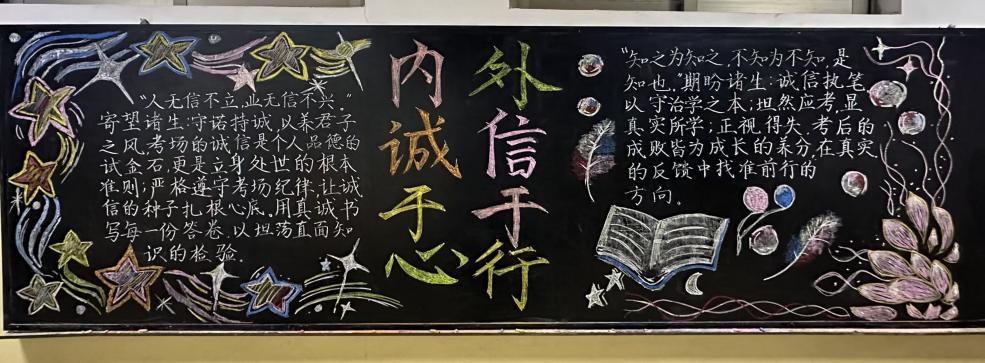 "人无信不立,业无信不兴。"
寄望诸生:守诺持诚,以养君子
之风。考场的诚信是个人品德的
试金石,更是立身处世的根本
准则;严格遵守考场纪律,让诚
信的种子扎根心底。用真诚书
写每一份答卷,以坦荡直面知
识的检验。
内诚于心
外信于行
"知之为知之,不知为不知,是
知也。"期盼诸生:诚信执笔,
以守治学之本;坦然应考,显
真实所学;正视得失,考后的
成败皆为成长的养分,在真实
的反馈中找准前行的
方向。